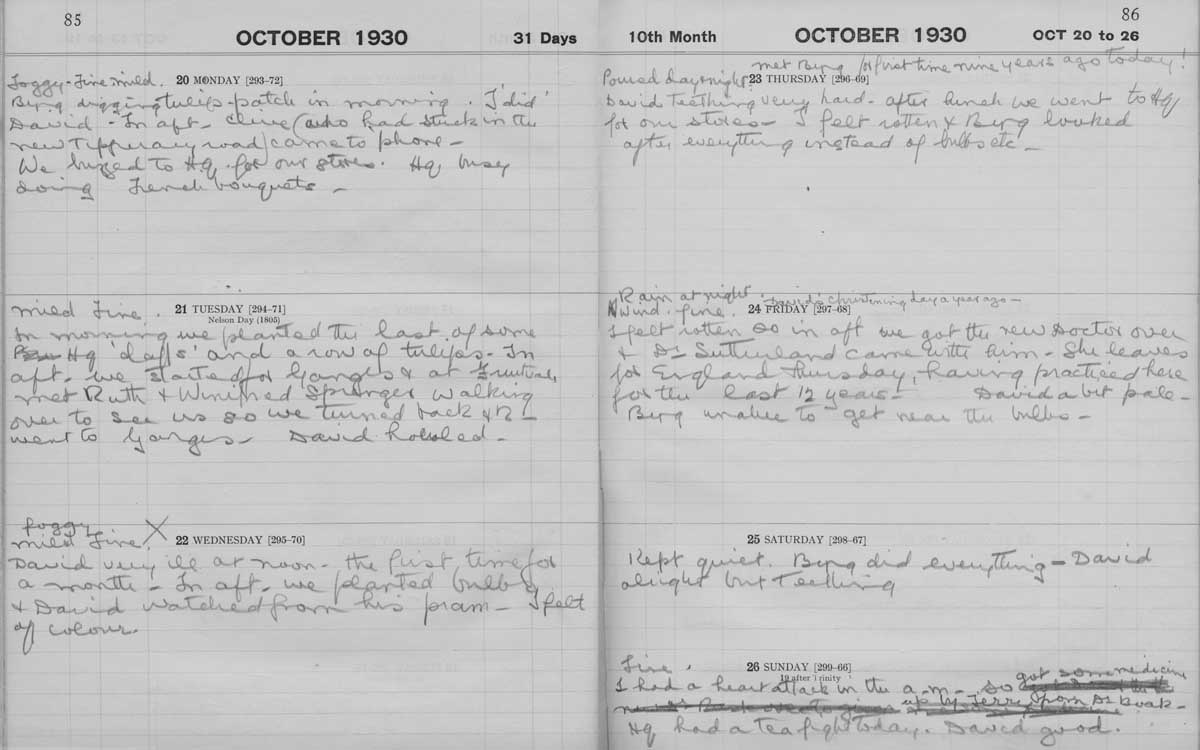 85
OCTOBER 1930
31 Days
Foggy - Fine mild.
20 MONDAY [293-72]
Berg digging tulip-patch in morning. I 'did'
David - In aft - Clive (who had stuck in the
new Tipperary road) came to phone -
We buzzed to Hq. for our stores. Hq busy
doing French bouquets -
mild Fine.
21 TUESDAY [294-71]
Nelson Day (1805)
In morning we planted the last of some
Hq 'daffs' and a row of tulips - In
aft - we started for Ganges & at Fruitvale
met Ruth & Winifred Springer walking
over to see us so we turned back & B -
went to Ganges - David howled -
foggy
mild Fine.
22 WEDNESDAY [295-70]
David very ill at noon - the first time for
a month - In aft - we planted bulbs
& David watched from his pram - I felt
of colour.
86
10th Month
OCTOBER 1930
OCT 20 to 26
met Berg for first time nine years ago today!
Poured day & night
23 THURSDAY [296-69]
David Teething very hard - after lunch we went to Hq
for our stores - I felt rotten & Berg looked
after everything instead of bulbs etc -
Rain at night.
David's christening day a year ago -
Wind - fine.
24 FRIDAY [297-68]
I felt rotten so in aft we got the new Doctor over
& Dr Sutherland came with him - She leaves
for England Thursday, having practiced here
for the last 12 years - David a bit pale -
Berg unable to get near the bulbs -
25 SATURDAY [298-67]
Kept quiet. Berg did everything - David
alright but Teething
Fine.
26 SUNDAY [299-66]
19 after Trinity
got some medicine
I had a heart attack in the a.m - so
up by Terry from Dr
Hq had a tea fight today. David good.